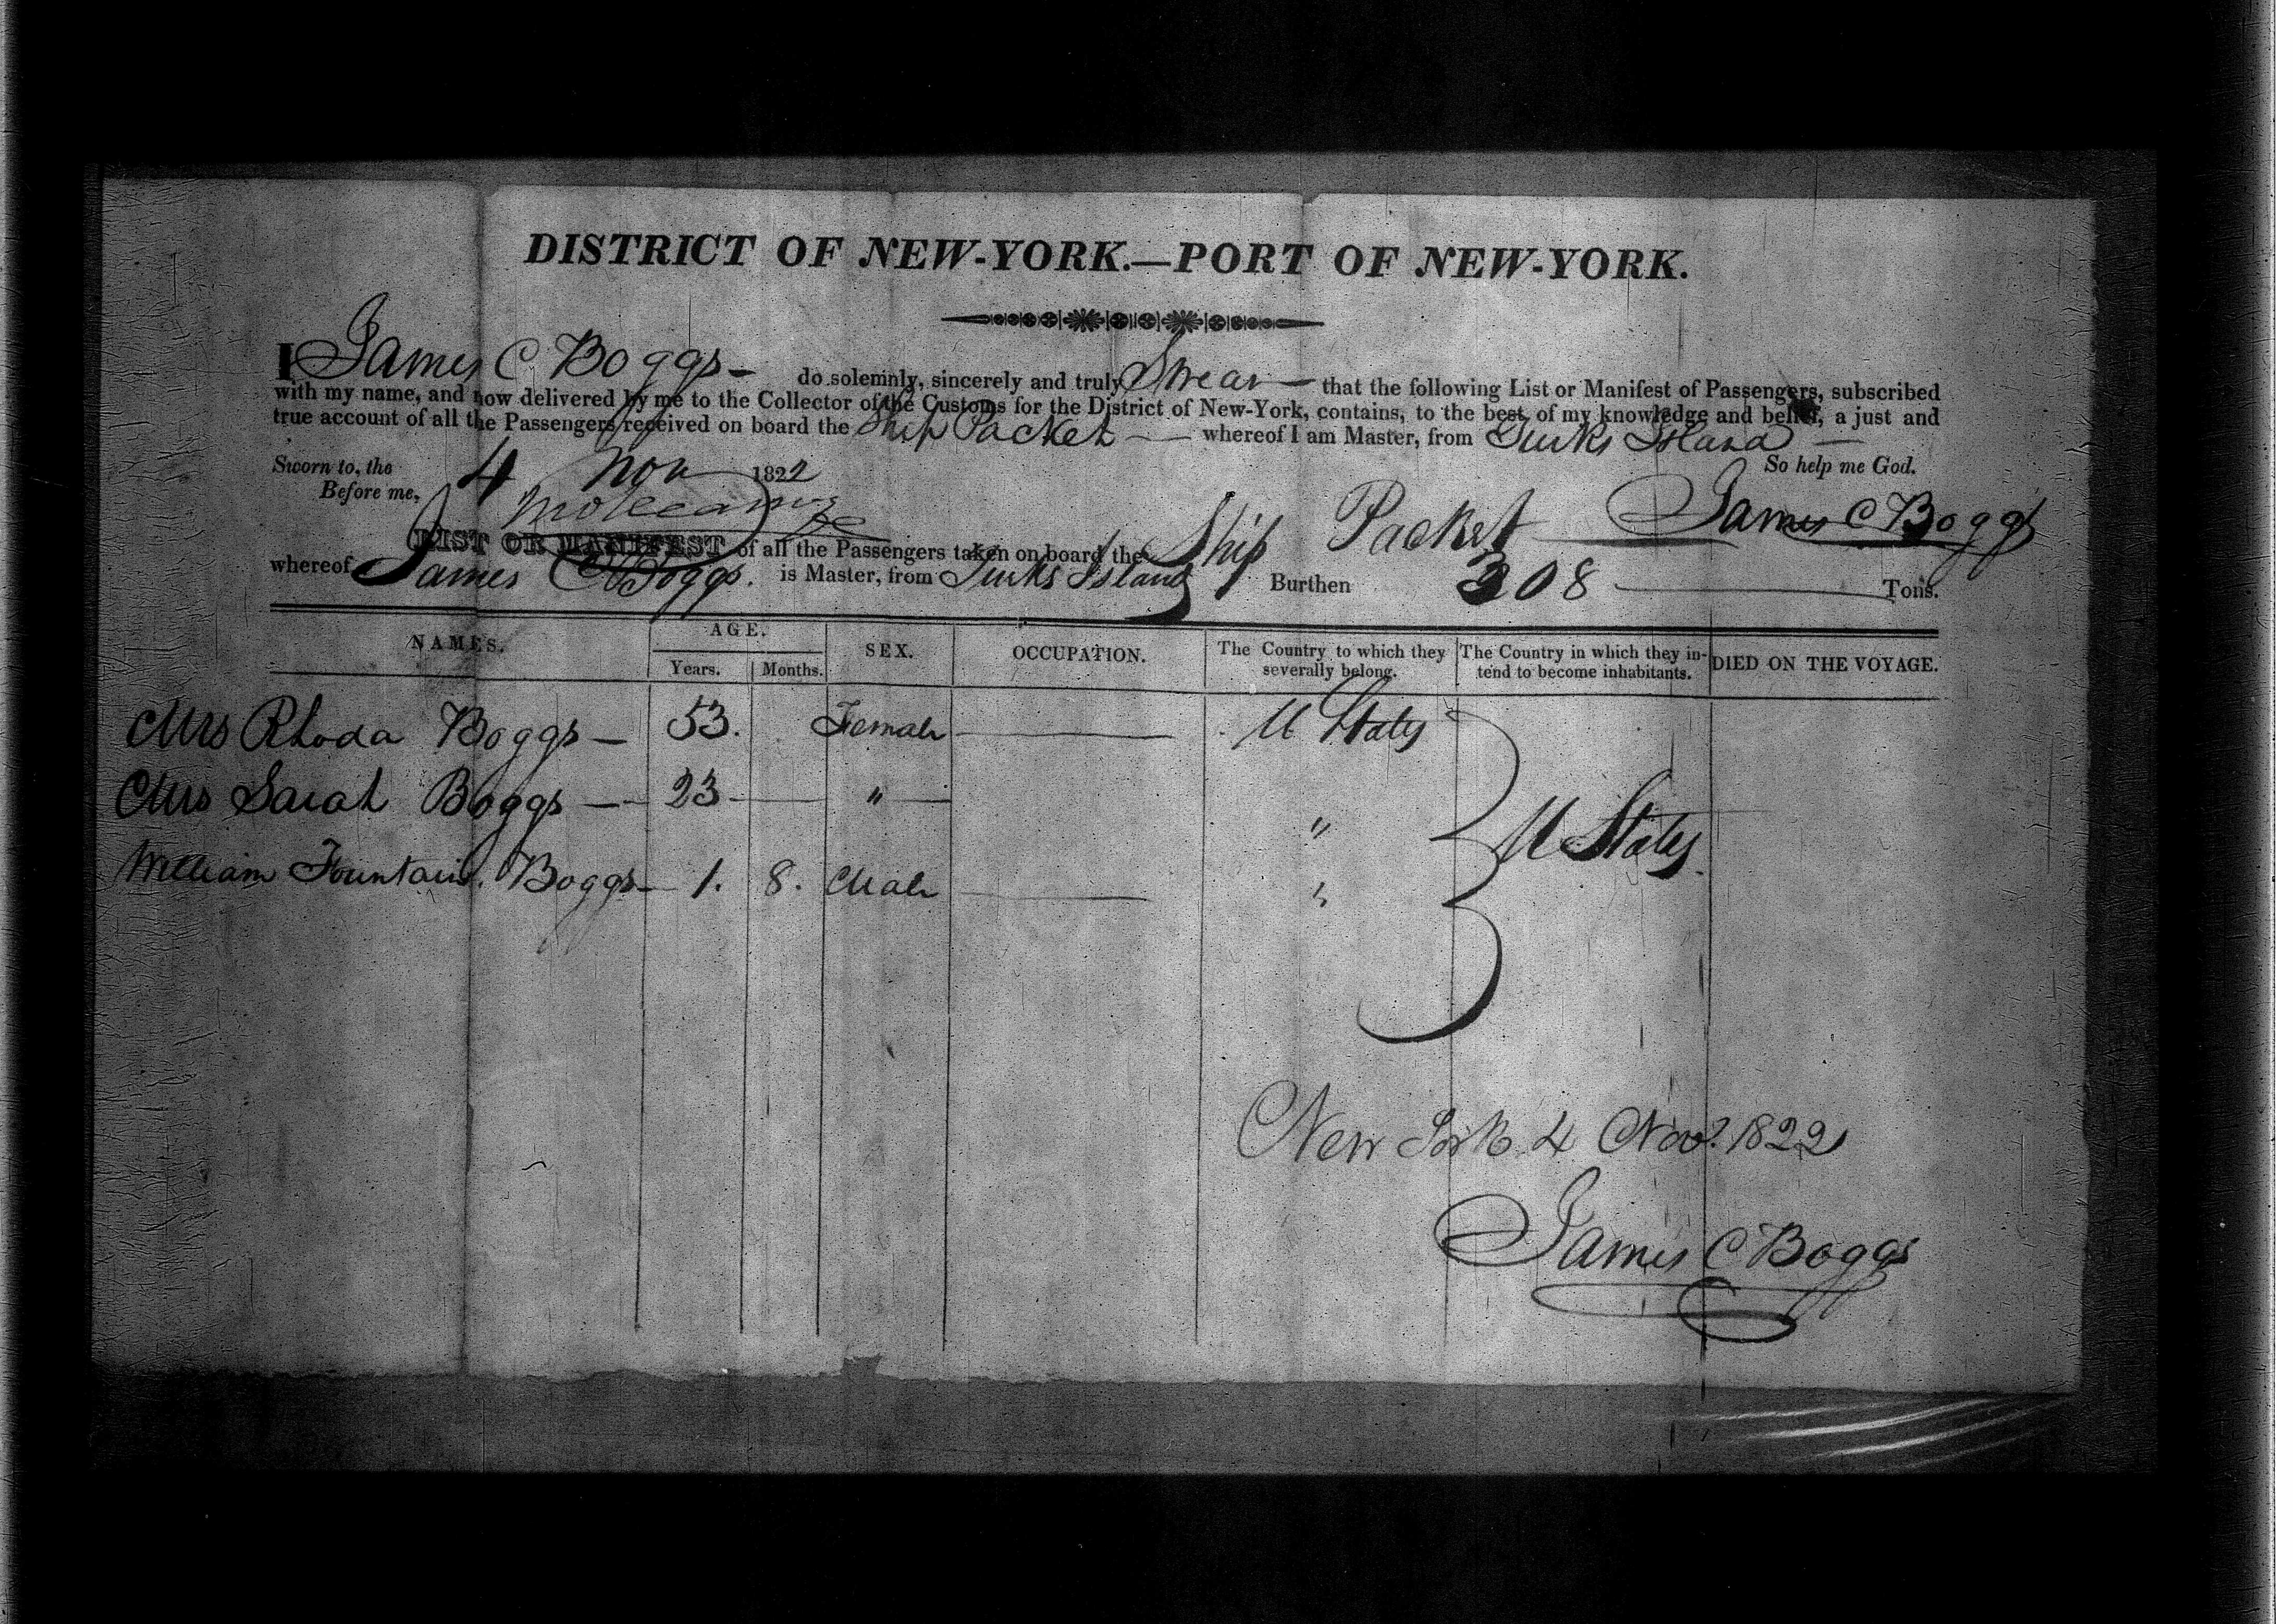 DISTRICT OF NEW-YORK.—PORT OF NEW-YORK.
I James C Boggs — do solemnly, sincerely and truly Swear — that the following List or Manifest of Passengers, subscribed
with my name, and now delivered by me to the Collector of the Customs for the District of New-York, contains, to the best of my knowledge and belief, a just and
true account of all the Passengers received on board the Ship Packet — whereof I am Master, from Turks Island —
Sworn to, the 4 Nov 1822 So help me God.
Before me, James C Boggs
LIST OR MANIFEST of all the Passengers taken on board the Ship Packet
whereof James C Boggs. is Master, from Turks Island Burthen 308 Tons.
NAMES. AGE. SEX. OCCUPATION. The Country to which they severally belong. The Country in which they intend to become inhabitants. DIED ON THE VOYAGE.
Years. Months.
Mrs Rhoda Boggs — 53. Female — U States
Mrs Sarah Boggs — 23 — " — " U States.
William Fountain. Boggs — 1. 8. Male — "
New York 4 Nov. 1822
James C Boggs